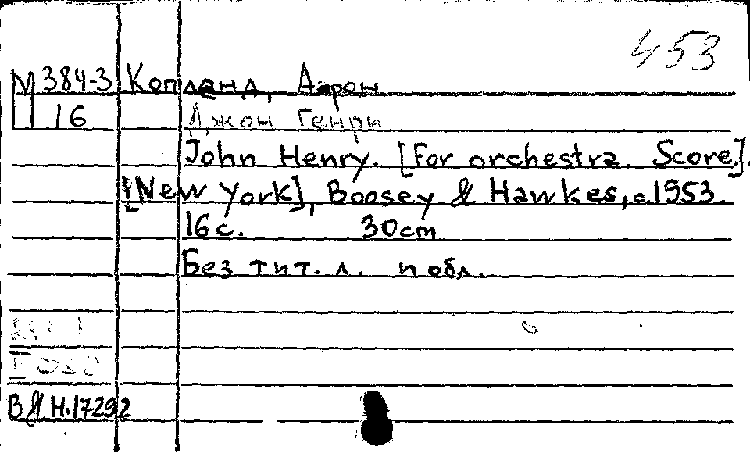 453
М 384-3 Копланд, Аарон
16 Джон Генри
John Henry. [For orchestra. Score].
[New York], Boosey & Hawkes, c.1953.
16 с. 30cm
Без тит. л. и обл.
B & H.17292